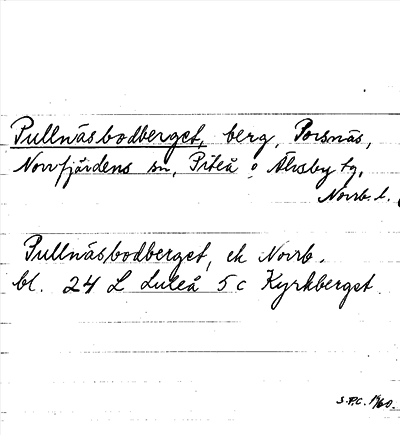 Pullnäsbodberget, berg, Porsnäs,
Norrfjärdens sn, Piteå o Älvsby tg,
Norrb. l.
Pullnäsbodberget, ek Norrb.
bl. 24 L Luleå 5 c Kyrkberget.
S.P.C.